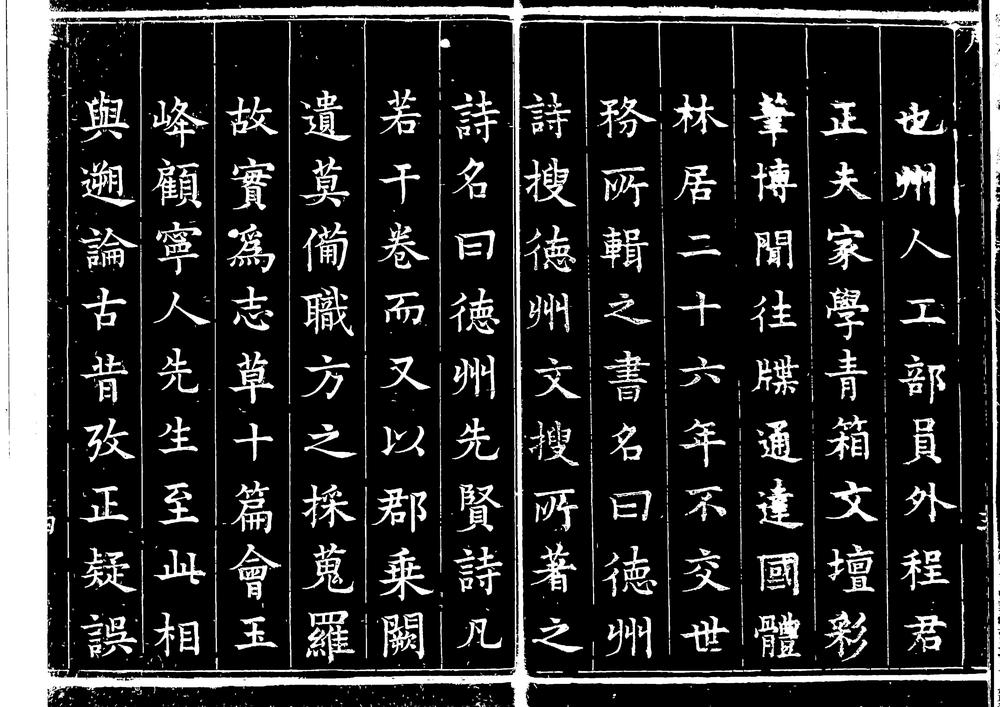 也州人工部員外程君
正夫家學青箱文壇彩
筆博聞往牒通達國體
林居二十六年不交世
務所輯之書名曰德州
詩搜德州文搜所著之
詩名曰德州先賢詩凡
若干卷而又以郡乗闕
遺莫備職方之採蒐羅
故實爲志草十篇會玉
峰顧寧人先生至此相
與遡論古昔攷正疑誤